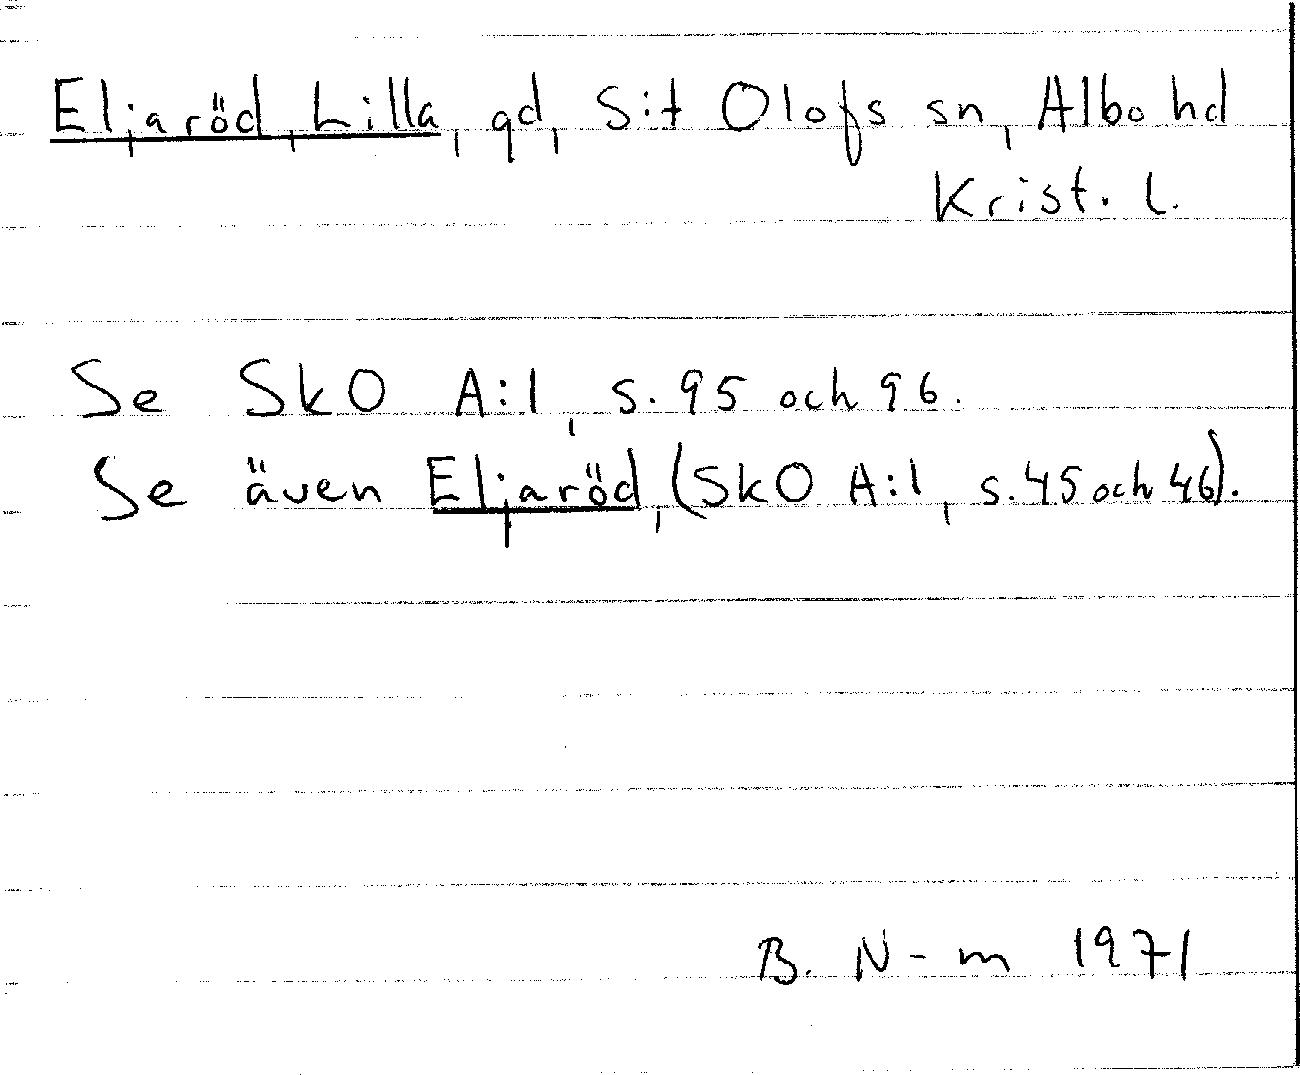 Eljaröd, Lilla, gd, S:t Olofs sn, Albo hd
Krist. l.
Se SkO A:1, s. 95 och 96.
Se även Eljaröd, (SkO A:1, s. 45 och 46).
B. N-m 1971